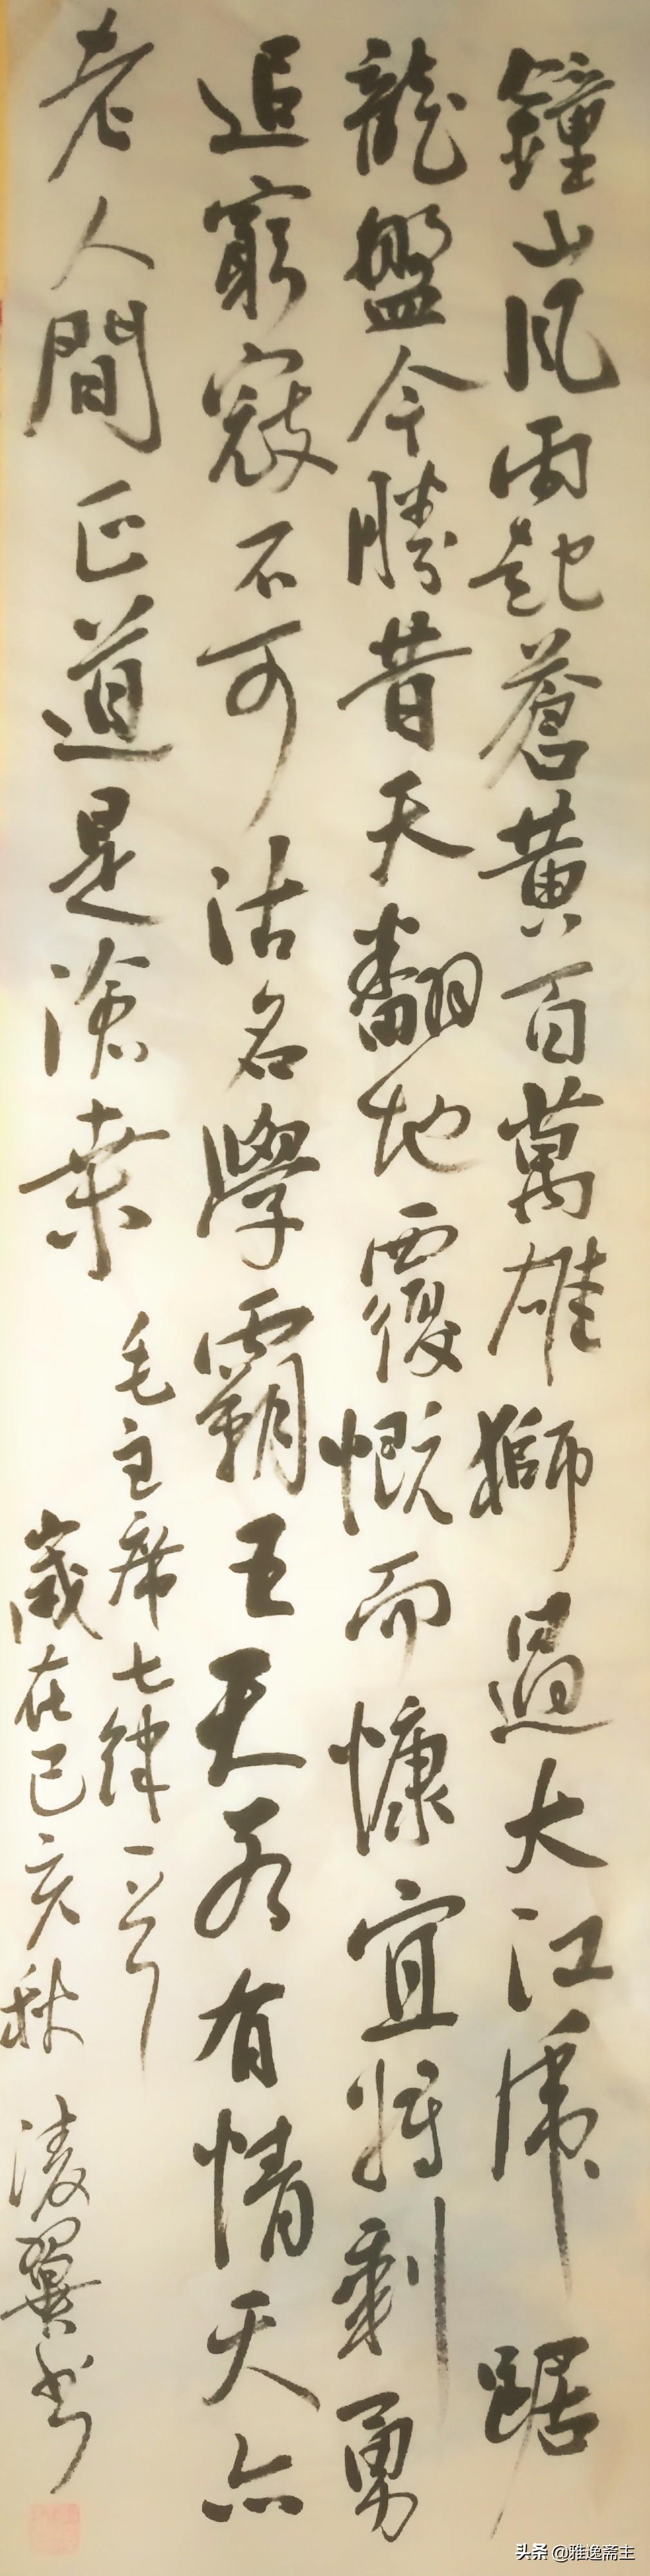 鐘山风雨起蒼黃百萬雄獅過大江虎踞
龍盤今勝昔天翻地覆慨而慷宜將剩勇
追窮寇不可沽名學霸王天若有情天亦
老人間正道是滄桑
毛主席七律一首
歲在己亥秋 淩翼书
头条 @雅逸斋主